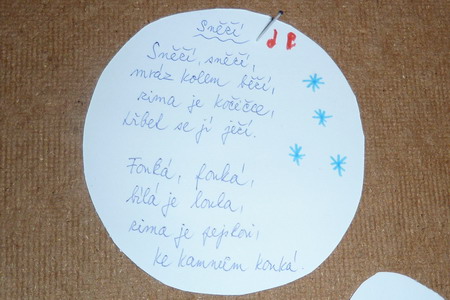 Sněčí
Sněčí, sněčí,
mráz kolem běčí,
zima je kočičce,
hřbet se jí ječí.
Fouká, fouká,
bílá je louka,
zima je pejskovi,
ke kamnům kouká.